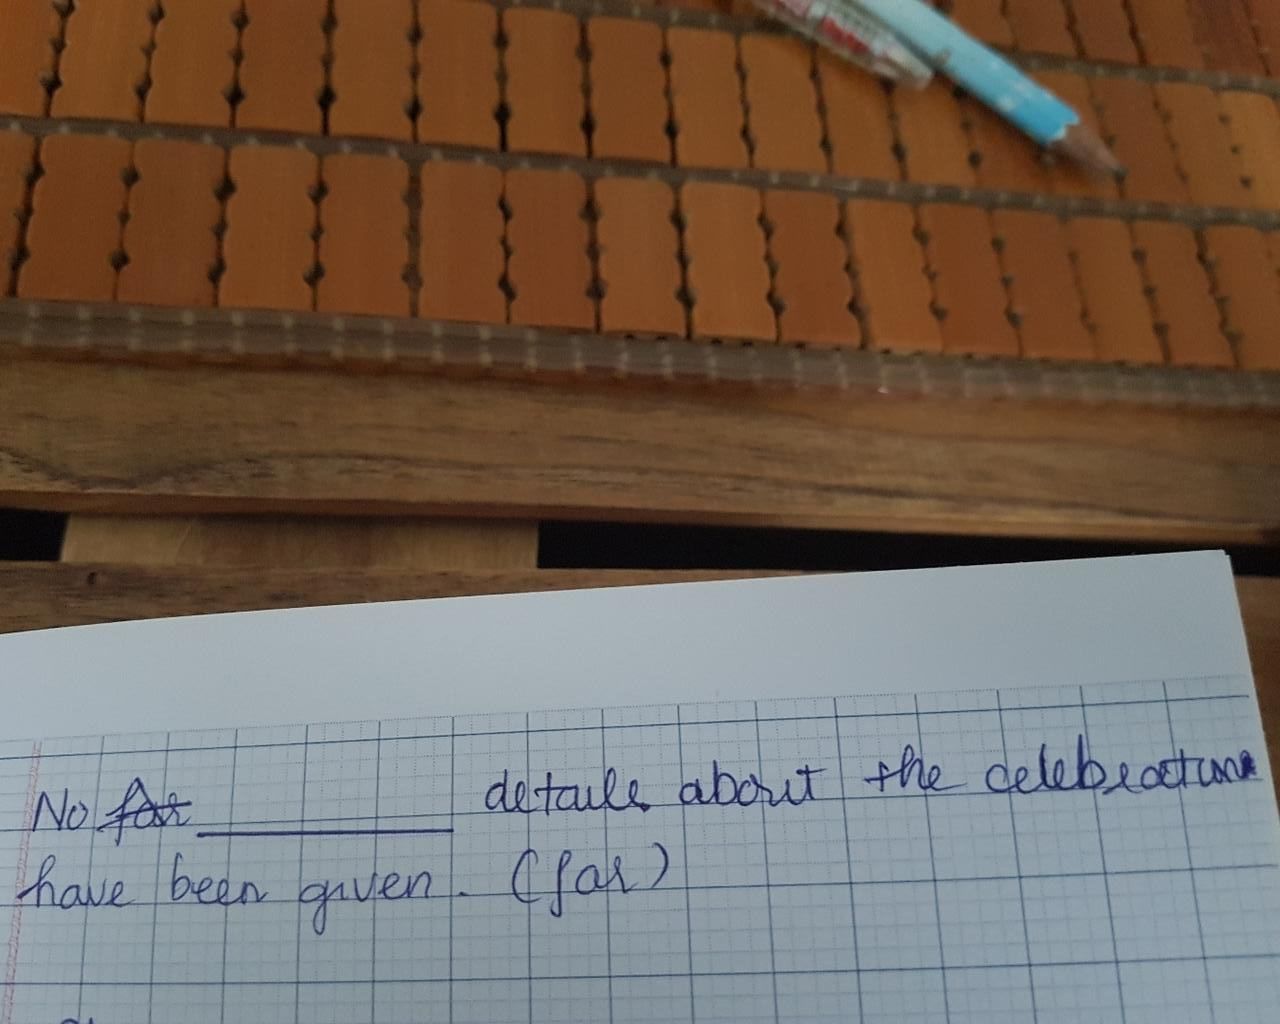 No far __________ details about the celebration
have been given. (far)